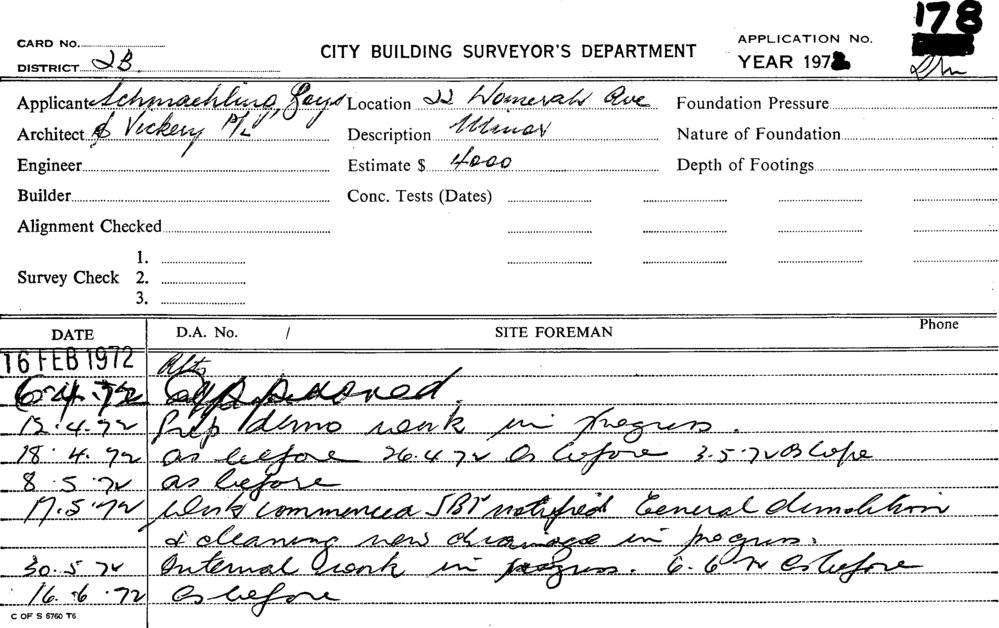 178
CARD No.
CITY BUILDING SURVEYOR'S DEPARTMENT
APPLICATION No.
DISTRICT 2B.
YEAR 1972
Applicant Schmaehling, Gays Location 22 Womerah Ave Foundation Pressure
Architect & Vickery P/L Description Minor Nature of Foundation
Engineer Estimate $ 4000 Depth of Footings
Builder Conc. Tests (Dates)
Alignment Checked
1.
Survey Check 2.
3.
DATE D.A. No. / SITE FOREMAN Phone
16 FEB 1972 Alts
6.4.72 Approved.
12.4.72 Prep demo work in progress.
18.4.72 as before 26.4.72 As before 3.5.72 as before
8.5.72 as before
17.5.72 Work commenced notified General demolition
& cleaning new drainage in progress.
30.5.72 Internal work in progress. 6.6.72 As before
16.6.72 As before
C OF S 6760 T6